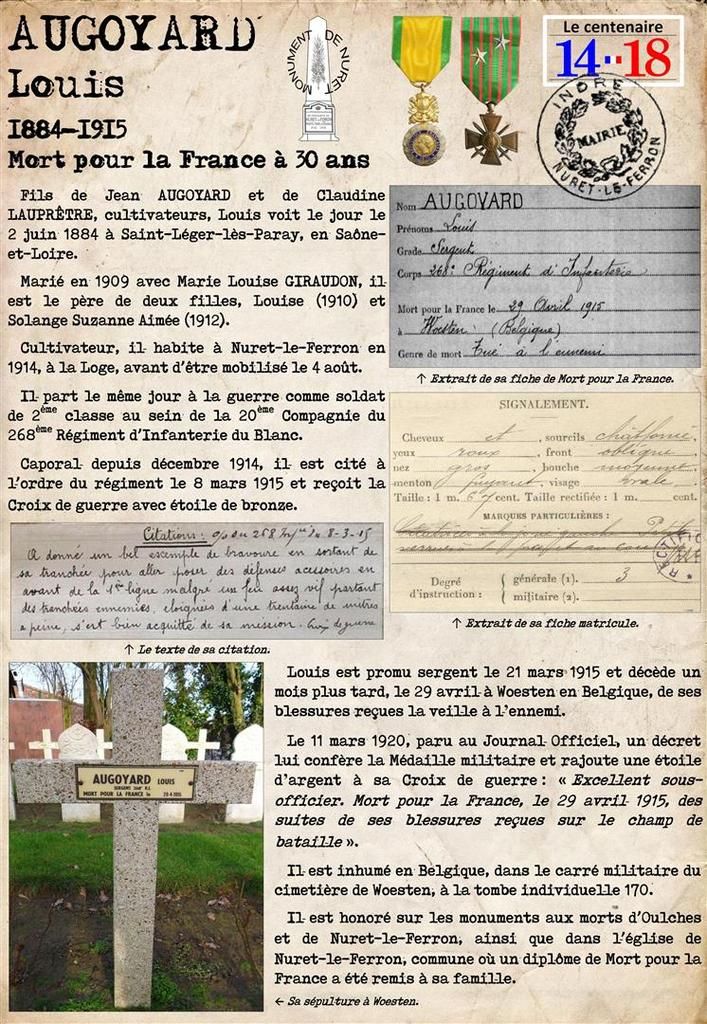 AUGOYARD
Louis
1884-1915
Mort pour la France à 30 ans
MONUMENT DE NURET
Le centenaire
14··18
INDRE
MAIRIE
NURET-LE-FERRON
Fils de Jean AUGOYARD et de Claudine
LAUPRÊTRE, cultivateurs, Louis voit le jour le
2 juin 1884 à Saint-Léger-lès-Paray, en Saône-
et-Loire.
Marié en 1909 avec Marie Louise GIRAUDON, il
est le père de deux filles, Louise (1910) et
Solange Suzanne Aimée (1912).
Cultivateur, il habite à Nuret-le-Ferron en
1914, à la Loge, avant d'être mobilisé le 4 août.
Il part le même jour à la guerre comme soldat
de 2ème classe au sein de la 20ème Compagnie du
268ème Régiment d'Infanterie du Blanc.
Caporal depuis décembre 1914, il est cité à
l'ordre du régiment le 8 mars 1915 et reçoit la
Croix de guerre avec étoile de bronze.
Nom AUGOYARD
Prénoms Louis
Grade Sergent
Corps 268e Régiment d'Infanterie
Mort pour la France le 29 Avril 1915
à Woesten (Belgique)
Genre de mort Tué à l'ennemi
↑ Extrait de sa fiche de Mort pour la France.
SIGNALEMENT.
Cheveux et, sourcils
yeux roux, front oblique
nez gros, bouche moyenne
menton fuyant, visage ovale
Taille : 1 m. 67 cent. Taille rectifiée : 1 m. cent.
MARQUES PARTICULIÈRES :
Degré
d'instruction :
générale (1). 3
militaire (2).
↑ Extrait de sa fiche matricule.
Citations : 268 8-3-15
A donné un bel exemple de bravoure en sortant de
sa tranchée pour aller poser des défenses accessoires en
avant de la 1ère ligne malgré un feu assez vif partant
des tranchées ennemies, éloignées d'une trentaine de mètres
à peine, s'est bien acquitté de sa mission. Croix de guerre
↑ Le texte de sa citation.
AUGOYARD LOUIS
SERGENT 268e R.I.
MORT POUR LA FRANCE le 29-4-1915
Louis est promu sergent le 21 mars 1915 et décède un
mois plus tard, le 29 avril à Woesten en Belgique, de ses
blessures reçues la veille à l'ennemi.
Le 11 mars 1920, paru au Journal Officiel, un décret
lui confère la Médaille militaire et rajoute une étoile
d'argent à sa Croix de guerre : « Excellent sous-
officier. Mort pour la France, le 29 avril 1915, des
suites de ses blessures reçues sur le champ de
bataille ».
Il est inhumé en Belgique, dans le carré militaire du
cimetière de Woesten, à la tombe individuelle 170.
Il est honoré sur les monuments aux morts d'Oulches
et de Nuret-le-Ferron, ainsi que dans l'église de
Nuret-le-Ferron, commune où un diplôme de Mort pour la
France a été remis à sa famille.
← Sa sépulture à Woesten.